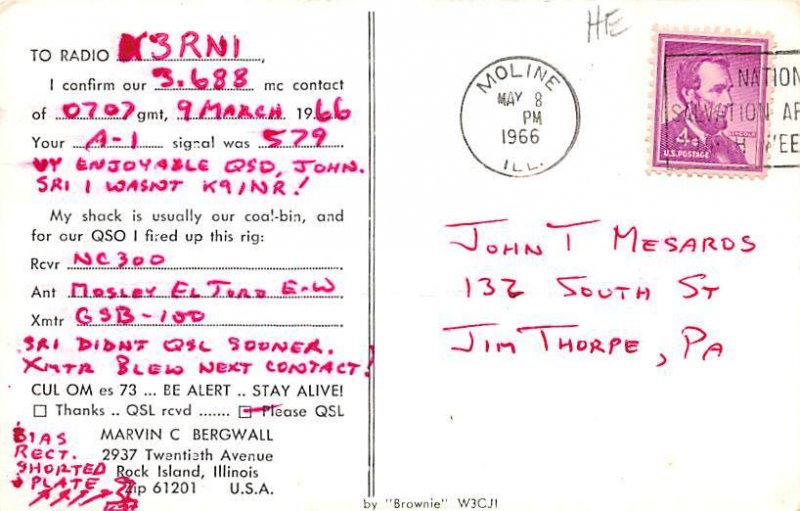 TO RADIO K3RNI,
I confirm our 3.688 mc contact
of 0707 gmt, 9 MARCH 1966
Your A-1 signal was 579
VY ENJOYABLE QSO, JOHN.
SRI I WASNT K9INR!
My shack is usually our coal-bin, and
for our QSO I fired up this rig:
Rcvr NC300
Ant MOSLEY EL TORO E-W
Xmtr GSB-100
SRI DIDNT QSL SOONER.
XMTR BLEW NEXT CONTACT!
CUL OM es 73 ... BE ALERT .. STAY ALIVE!
Thanks .. QSL rcvd ....... Please QSL
MARVIN C BERGWALL
2937 Twentieth Avenue
Rock Island, Illinois
Zip 61201 U.S.A.
BIAS
RECT.
SHORTED
PLATE
by "Brownie" W3CJI
HE
MOLINE
MAY 8
PM
1966
ILL.
NATION
SALVATION AR
WEE
LINCOLN
4¢
U.S. POSTAGE
JOHN T MESAROS
132 SOUTH ST
JIM THORPE, PA